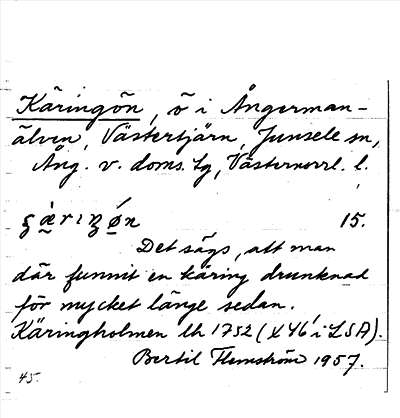 Käringön, ö i Ångerman-
älven, Västertjärn, Junsele sn,
Ång. v. doms. lg, Västernorrl. l.
15.
Det sägs, att man
där funnit en käring drunknad
för mycket länge sedan.
Käringholmen lh 1752 (X46 i LSA).
Bertil Flemström 1957.
45.